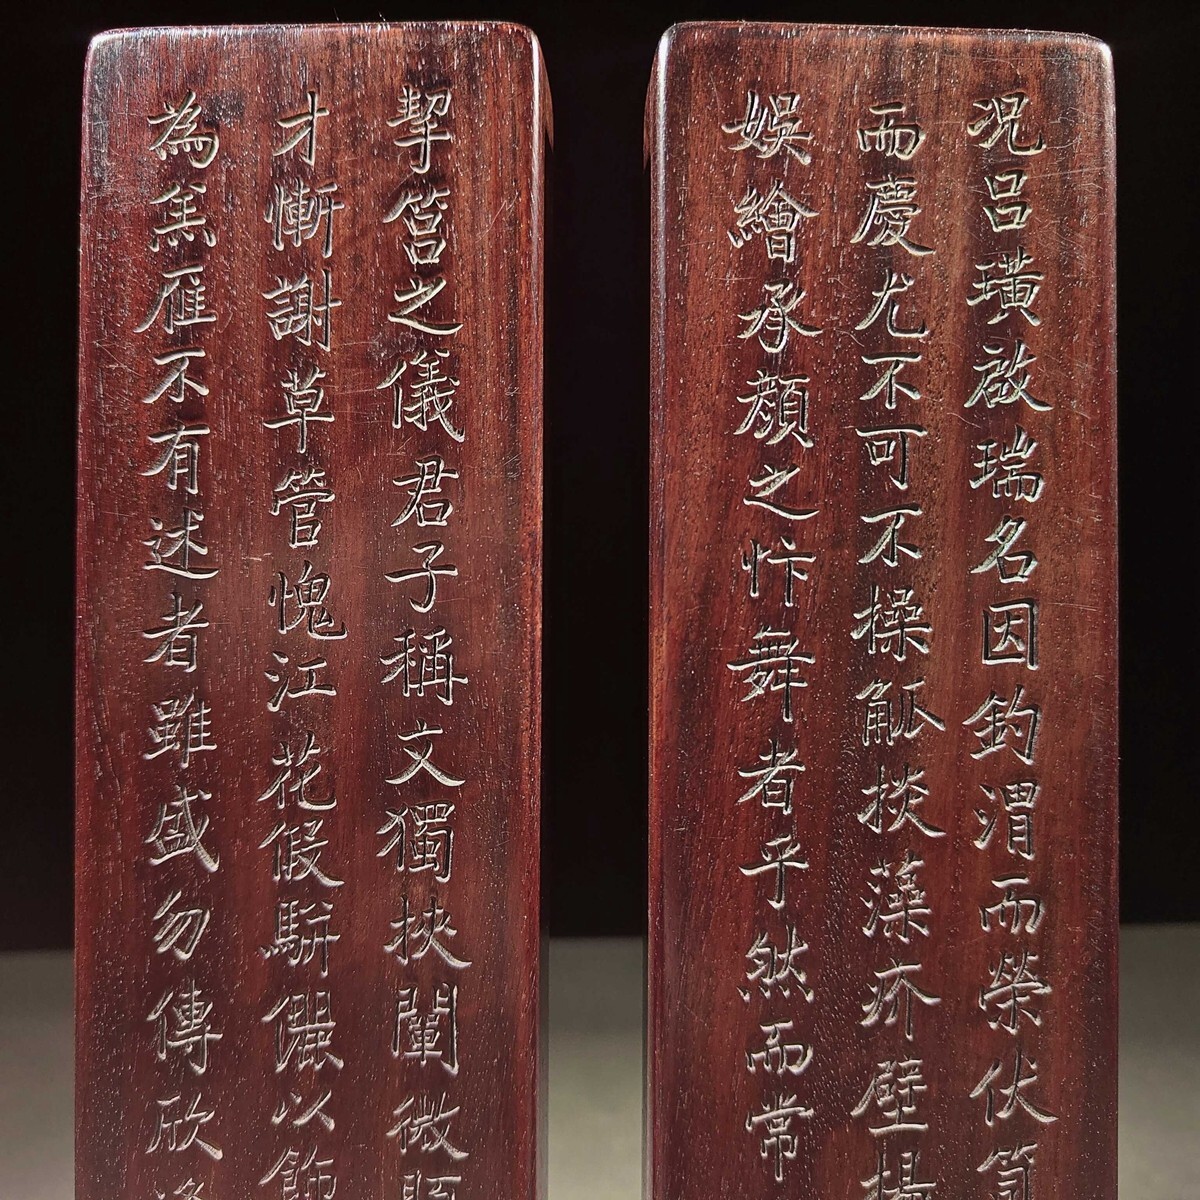 況呂璜啟瑞名因釣渭而榮伏
而慶尤不可不操觚掞藻疥壁
娛繪承顏之忭舞者乎然而常
挈筥之儀君子稱文獨挾闡微
才慚謝草管愧江花假駢儷以飾
為羔雁不有述者雖盛勿傳欣